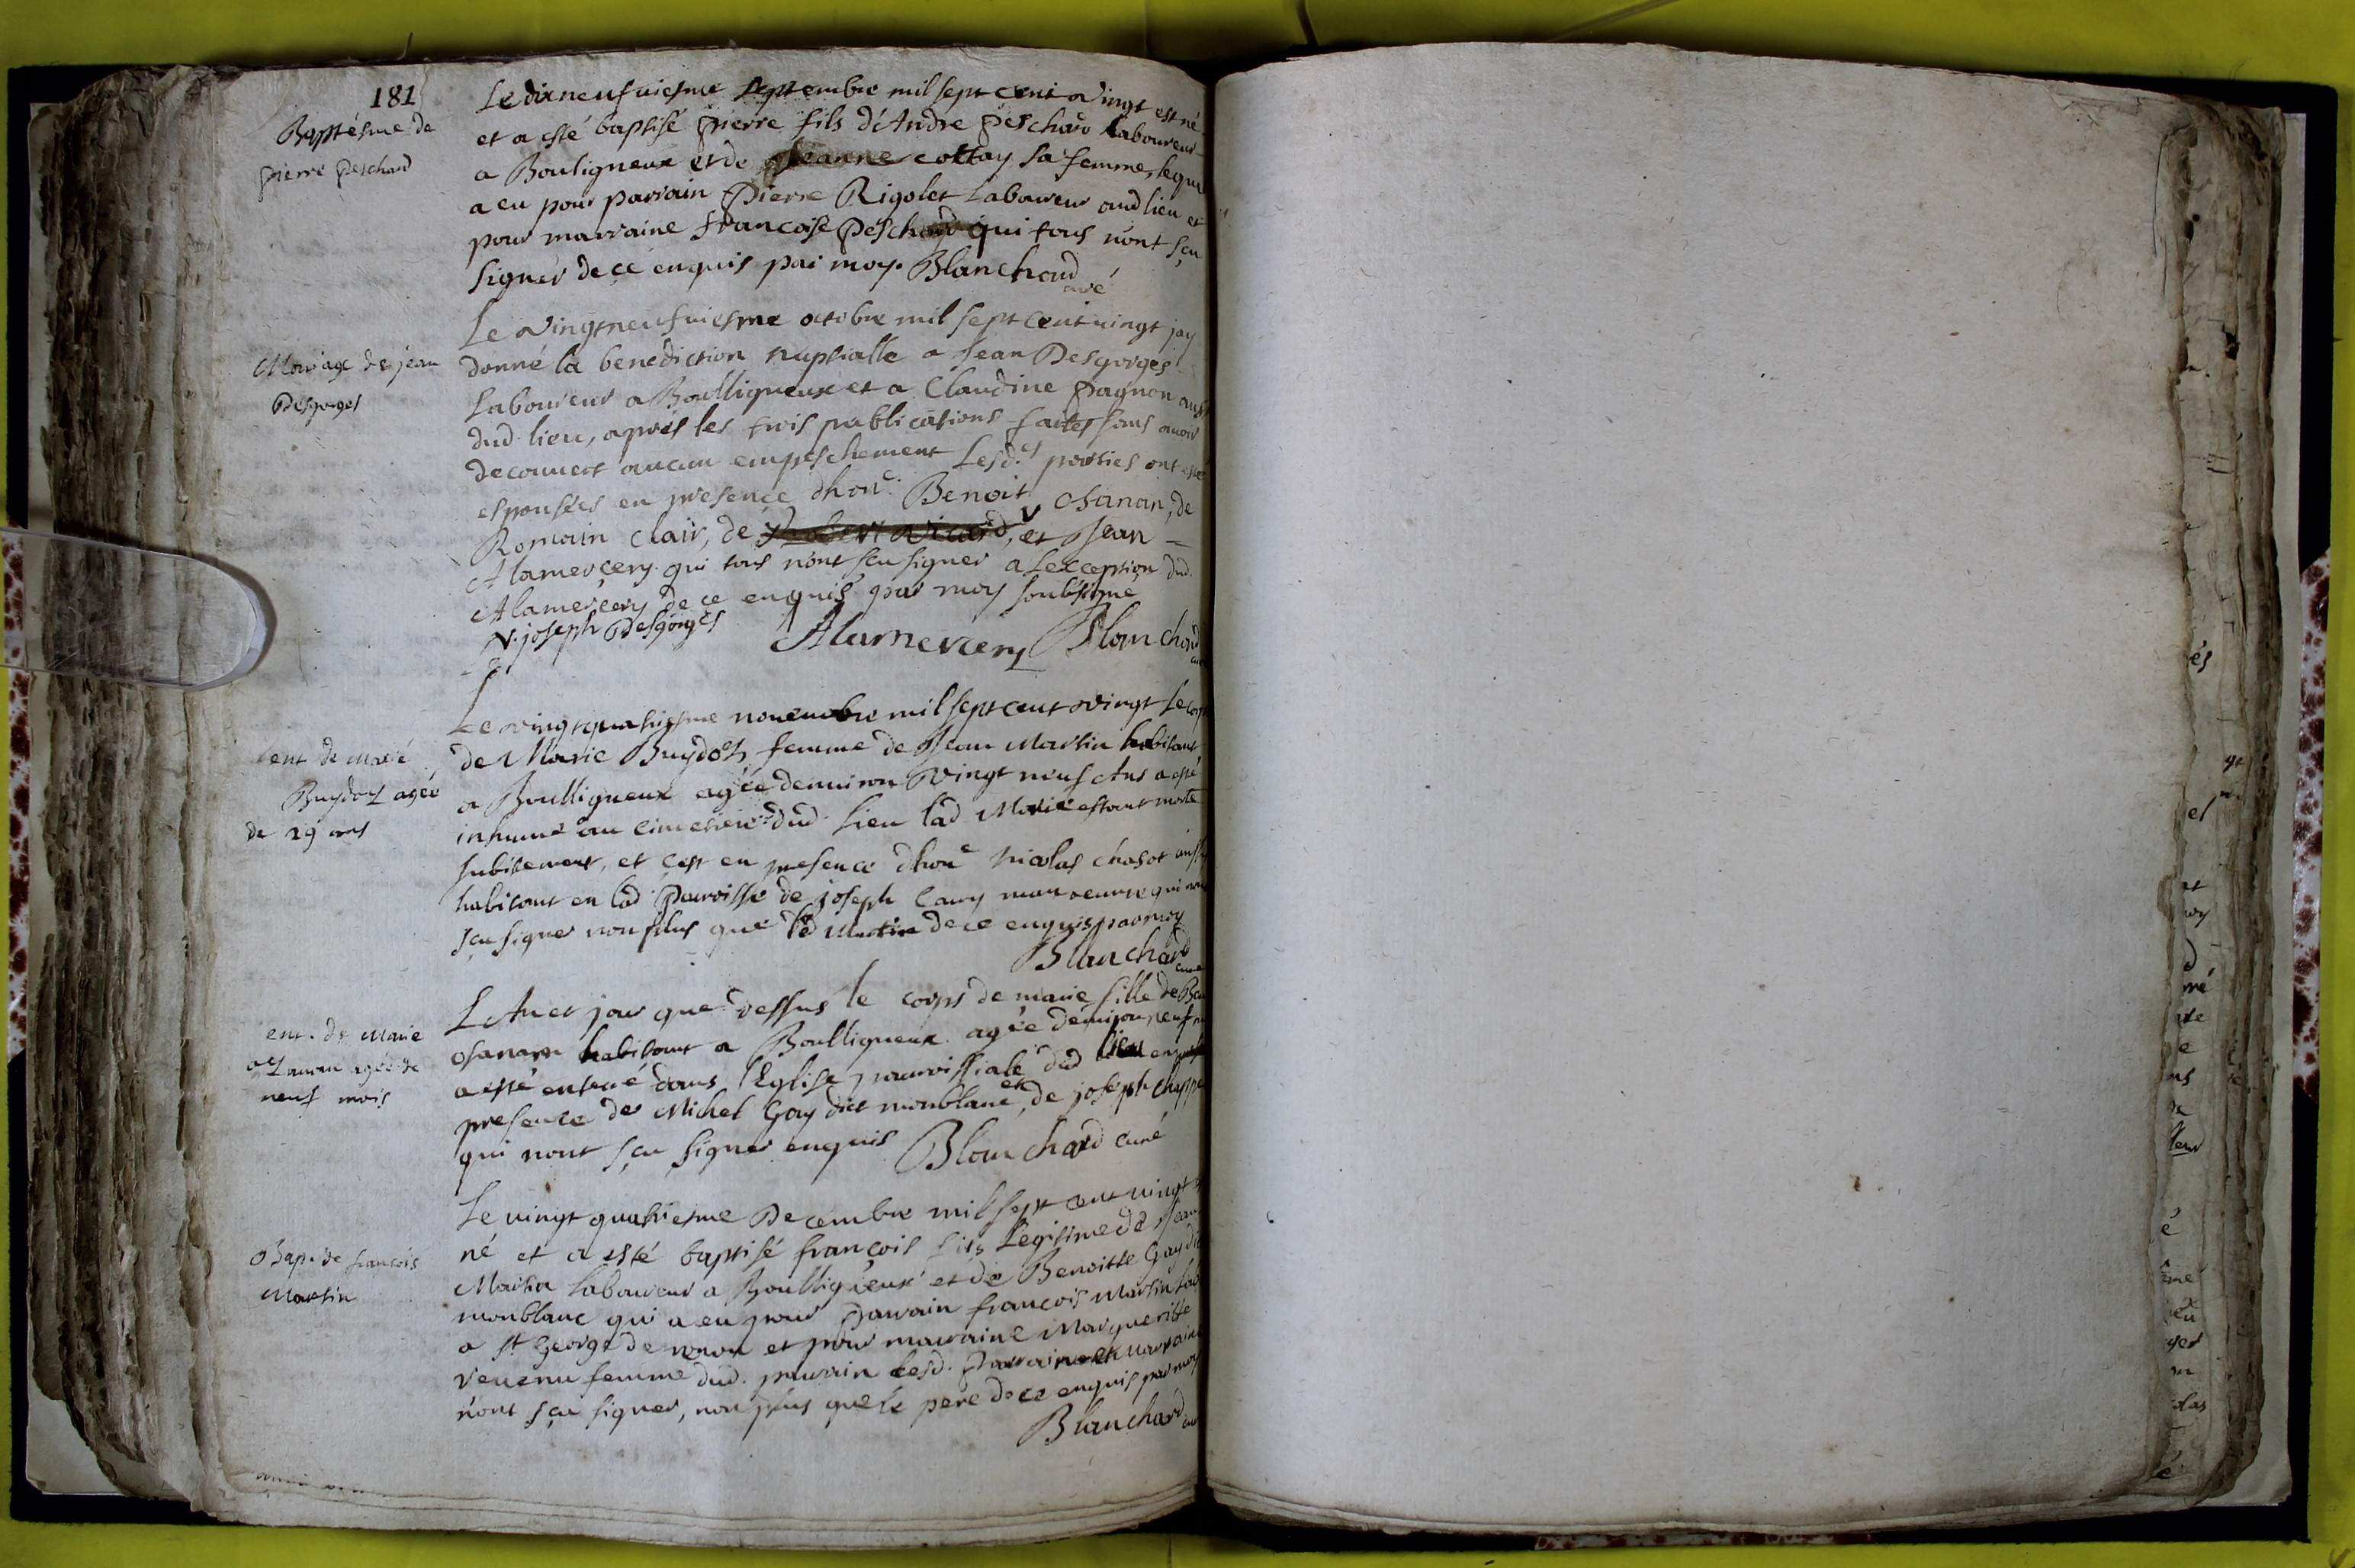 181
Baptesme de
pierre peschard
Le dixneufviesme septembre mil sept cent vingt est né
et a esté baptisé pierre fils d'Andre peschard laboureur
a Bouligneux et de Jeanne cottay sa femme, lequel
a eu pour parrain pierre Rigolet Laboureur aud lieu et
pour marraine francoise peschard qui tous n'ont sçu
signer de ce enquis par moy. Blanchard
curé
Mariage de jean
Desgorges
Le vingtneufviesme octobre mil sept cent vingt jay
donné la benediction nuptialle a Jean Desgorges
Laboureur a Boulligneux et a Claudine pagnon aussy
dud. lieu, après les trois publications faites sans avoir
decouvert aucun empeschement Lesd.es parties ont esté
espousées en presence dhon.e Benoit Osanan, de
Romain Clair, de et Jean
Alamercery. qui tous n'ont sçu signer a Lexception dud.
Alamercery de ce enquis par moy soubsigné
v. joseph Desgorges
Alamercery Blanchard
curé
ent de marie
Buydot agée
de 29 ans
Le vingtquatriesme novembre mil sept cent vingt le corps
de Marie Buydot femme de Jean Martin habitant
a Boulligneux agée denviron vingt neuf Ans a esté
inhumé au Cimetiere dud. lieu lad Marie estant morte
subitement, et c'est en presence dhon.e Nicolas chasot aussy
habitant en lad paroisse de joseph Cany manoeuvre qui nont
sçu signer non plus que led Martin de ce enquis par moy
Blanchard
curé
ent. de Marie
Osanan agée de
neuf mois
L'An et jour que dessus le corps de marie fille de
Osanan habitant a Boulligneux agée denviron neuf
a esté enterré dans l'Eglise parroissiale dud lieu en
presence de Michel Gay dict monblanc, et de joseph
qui n'ont sçu signer enquis Blanchard curé
Bap. de francois
Martin
Le vingt quatriesme Decembre mil sept cent vingt
né et a esté baptisé françois fils Legitime de Jean
Martin laboureur a Boulligneux et de Benoitte Gay dit
monblanc qui a eu pour parrain françois Martin
a St George de renon et pour marraine Margueritte
Venenu femme dud. parrain Lesd. Parrain et marraine
n'ont sçu signer, non plus que le pere de ce enquis par moy
Blanchard